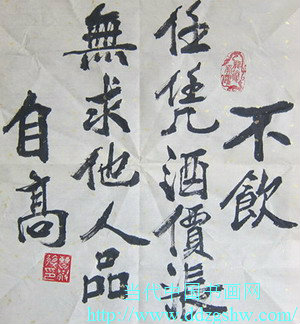 不飲
任凭酒價漲
無求他人品
自高
当代中国书画网
http://www.ddzshw.com/